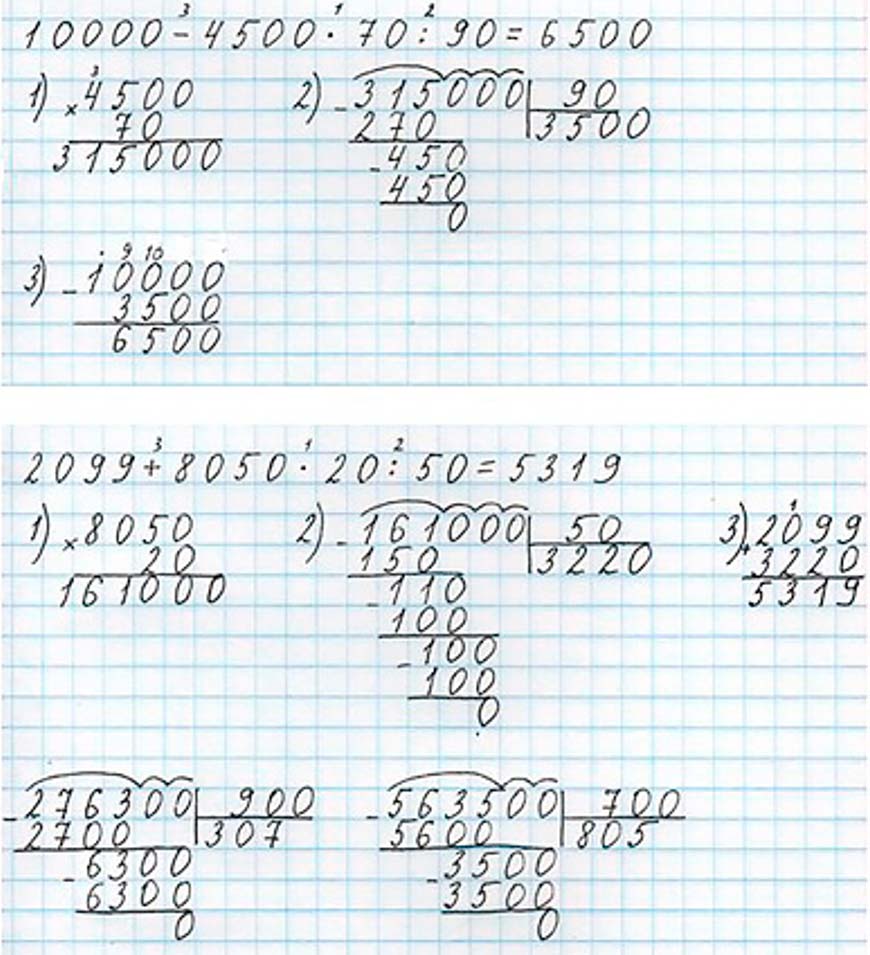 10000 - 4500 · 70 : 90 = 6500
3 1 2
1) × 4500
3
70
315000
2) - 315000 | 90
270 | 3500
- 450
450
0
3) - 10000
9 10
3500
6500
2099 + 8050 · 20 : 50 = 5319
3 1 2
1) × 8050
20
161000
2) - 161000 | 50
150 | 3220
- 110
100
- 100
100
0
3) + 2099
1
3220
5319
- 276300 | 900
2700 | 307
- 6300
6300
0
- 563500 | 700
5600 | 805
- 3500
3500
0